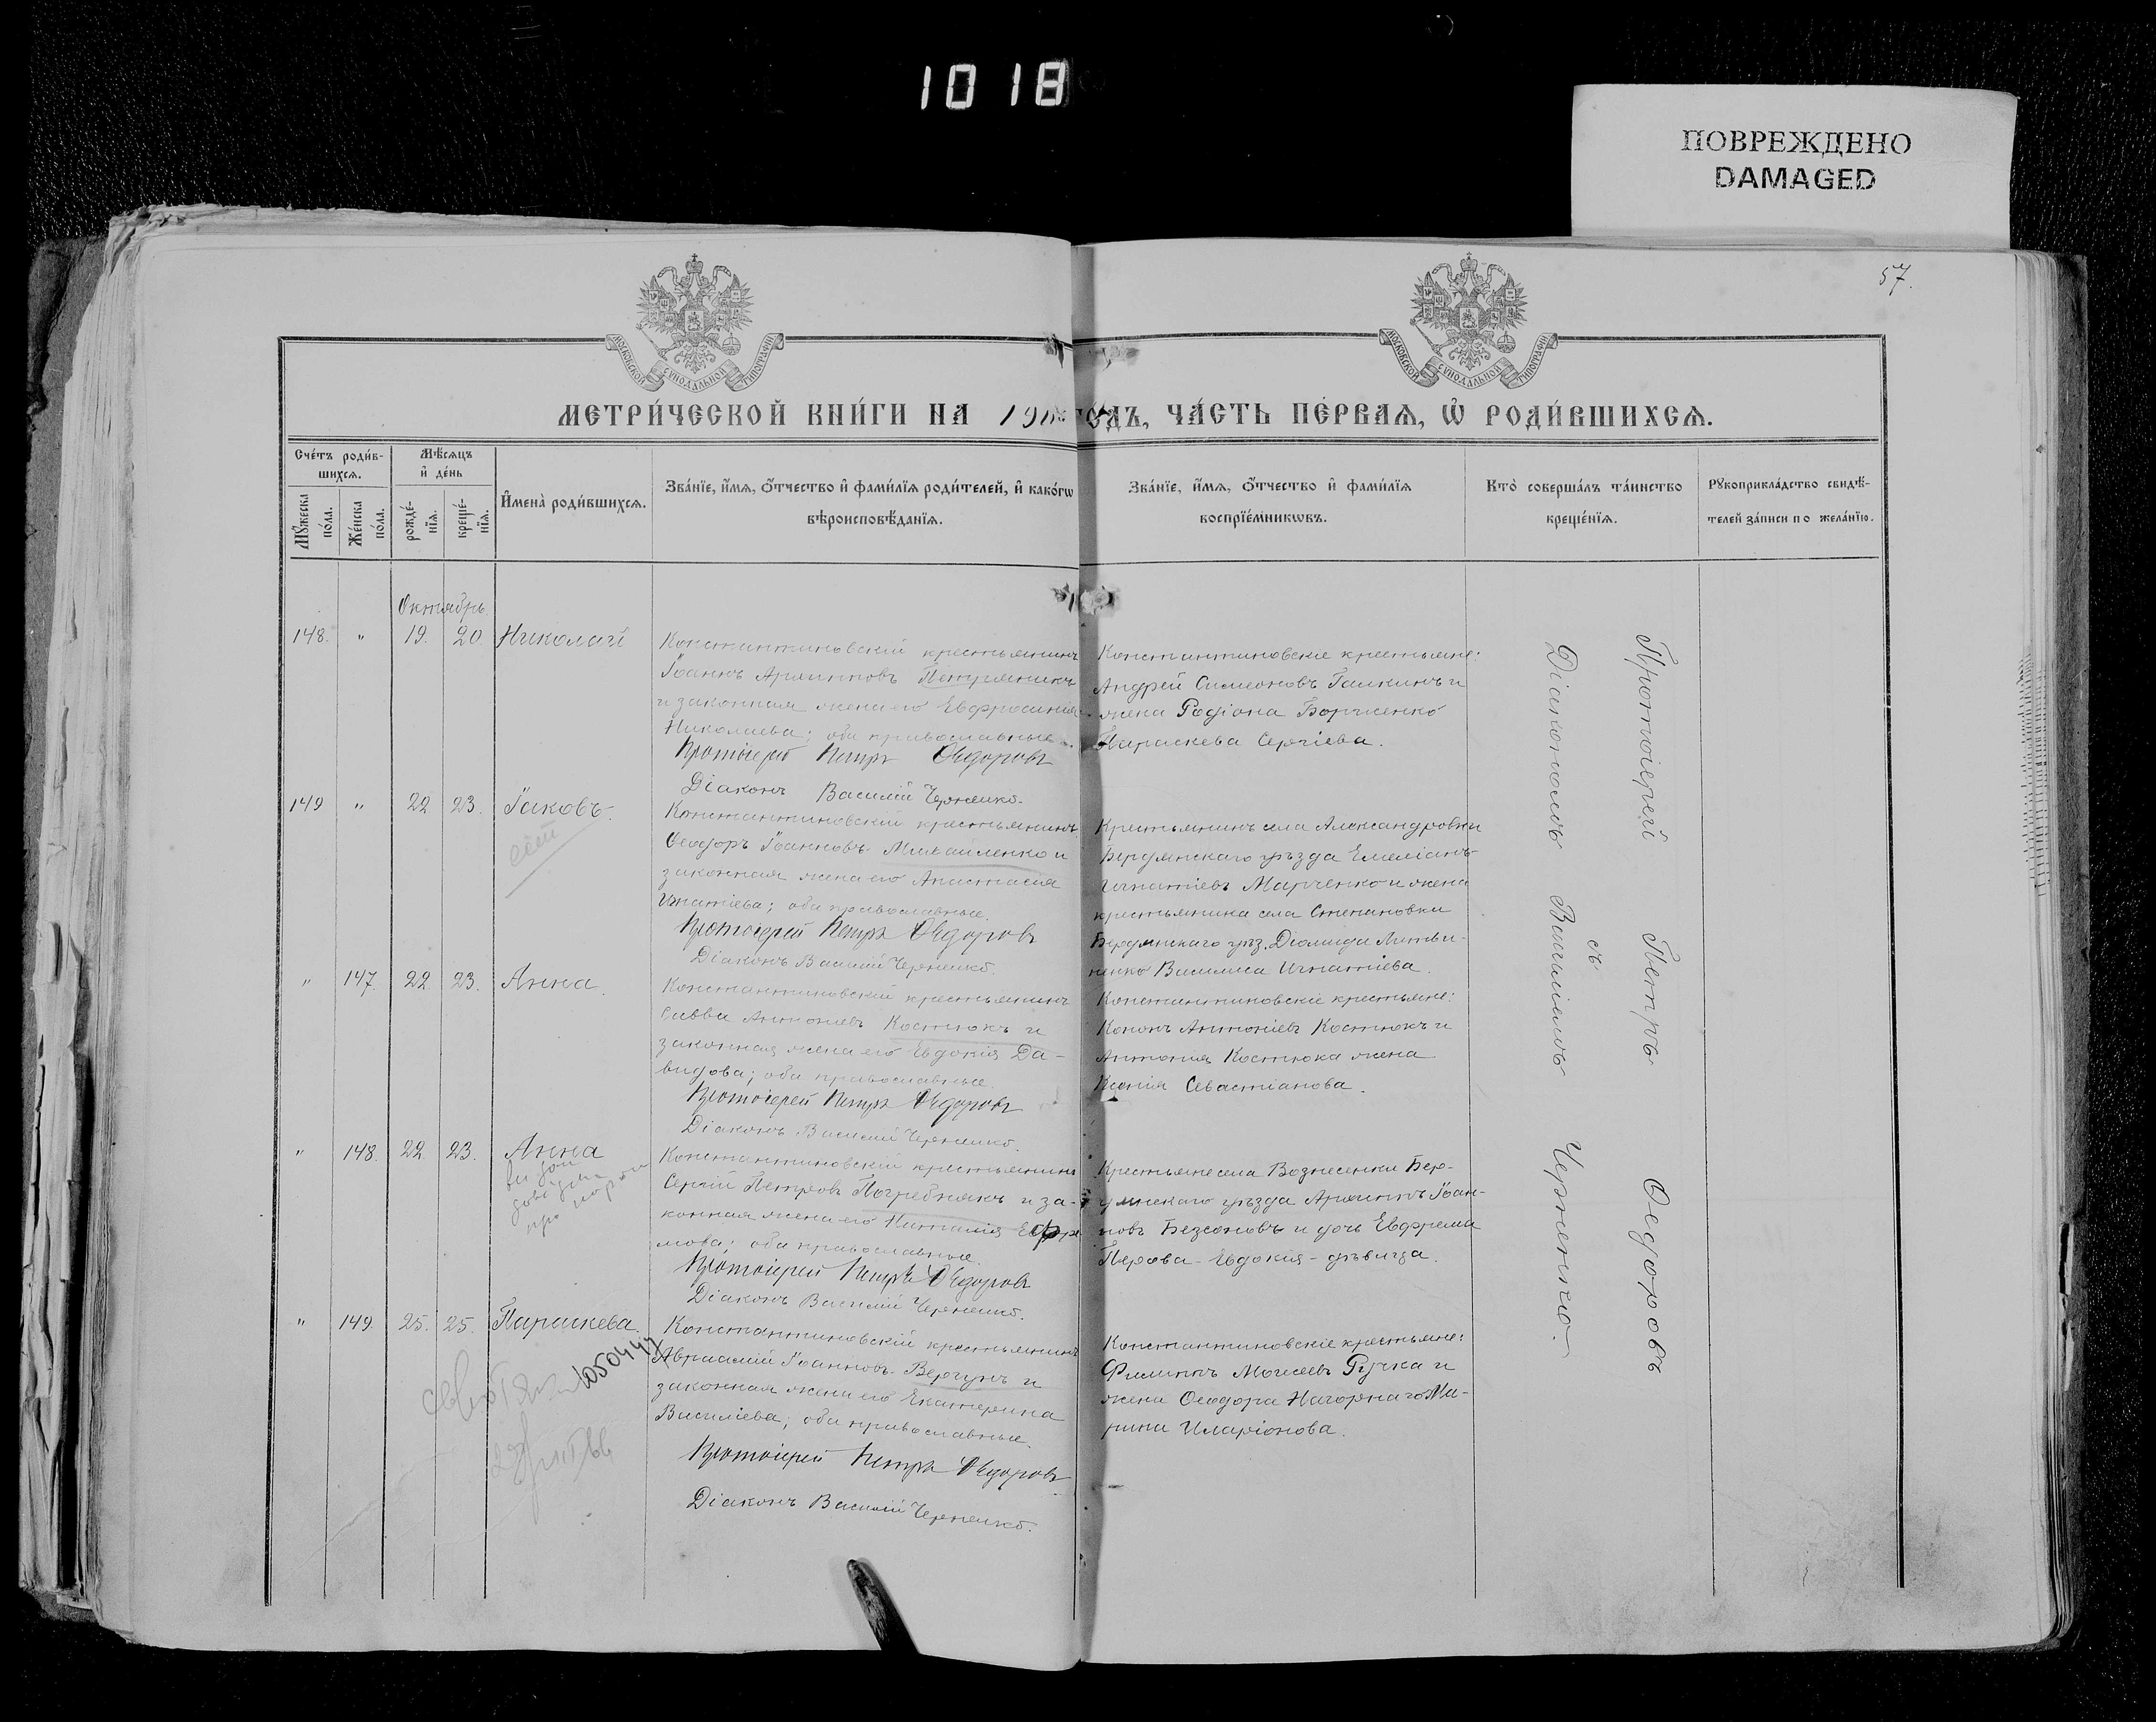 1018
ПОВРЕЖДЕНО
DAMAGED
57.
МОСКОВСКОЙ СѴНОДАЛЬНОЙ ТИПОГРАФІИ
МОСКОВСКОЙ СѴНОДАЛЬНОЙ ТИПОГРАФІИ
МЕТРИ́ЧЕСКОЙ КНИ́ГИ НА го́дъ, ЧА́СТЬ ПЕ́РВАѦ, Ѡ҆ РОДИ́ВШИХСѦ.
Сче́тъ роди́в-
шихсѧ.
Мѣ́сѧцъ
и҆ де́нь
Мꙋ́жеска по́ла.
Же́нска по́ла.
рожде́-
нїѧ.
креще́-
нїѧ.
И҆мена̀ роди́вшихсѧ.
Зва́нїе, и҆́мѧ, ѻ҆́тчество и҆ фами́лїѧ роди́телей, и҆ како́гѡ
вѣроисповѣ́данїѧ.
Зва́нїе, и҆́мѧ, ѻ҆́тчество и҆ фами́лїѧ
воспрїе́мникѡвъ.
Кто̀ соверша́лъ та́инство
креще́нїѧ.
Рꙋкоприкла́дство свидѣ́-
телей за́писи по жела́нїю.
Октябрь
148. " 19. 20 Николай
Константиновскій крестьянинъ
Іоаннъ Петряникъ
и законная жена его Евфросинія
Николаева; оба православные.
Протоіерей Петръ Ѳедоровъ
Діаконъ Василій Черненко.
Константиновскіе крестьяне:
Андрей Симеоновъ Галкинъ и
жена Родіона Борченко
Параскева Сергіева.
149 " 22 23. Іаковъ.
Константиновскій крестьянинъ
Ѳеодоръ Іоанновъ Михайленко и
законная жена его Анастасія
Игнатіева; оба православные.
Протоіерей Петръ Ѳедоровъ
Діаконъ Василій Черненко.
Крестьянинъ села Александровки
Бердянскаго уѣзда Емеліанъ
Игнатіевъ Марченко и жена
крестьянина села Степановки
Бердянскаго уѣз. Діомида Литви-
ненко Василиса Игнатіева.
" 147. 22 23. Анна.
Константиновскій крестьянинъ
Савва Антоніевъ Костюкъ и
законная жена его Евдокія Да-
видова; оба православные.
Протоіерей Петръ Ѳедоровъ
Діаконъ Василій Черненко.
Константиновскіе крестьяне:
Кононъ Антоніевъ Костюкъ и
Антонія Костюка жена
Ксенія Севастіанова.
" 148. 22 23. Анна
Константиновскій крестьянинъ
Сергій Петровъ Погребнякъ и за-
конная жена его Наталія Ефре
мова; оба православные.
Протоіерей Петръ Ѳедоровъ
Діаконъ Василій Черненко.
Крестьяне села Вознесенки Бер-
дянскаго уѣзда Іоан-
новъ Безсоновъ и дочь Евфрема
Перова - Евдокія - дѣвица.
" 149. 25. 25. Параскева.
Константиновскій крестьянинъ
Авраамій Іоанновъ Вергунъ и
законная жена его Екатерина
Василіева; оба православные.
Протоіерей Петръ Ѳедоровъ
Діаконъ Василій Черненко.
Константиновскіе крестьяне:
Филиппъ Моисеевъ Ручка и
жена Ѳеодора Нагорнаго Ма-
рина Иларіонова.
Протоіерей Петръ Ѳедоровъ
съ
Діакономъ Василіемъ Черненко.